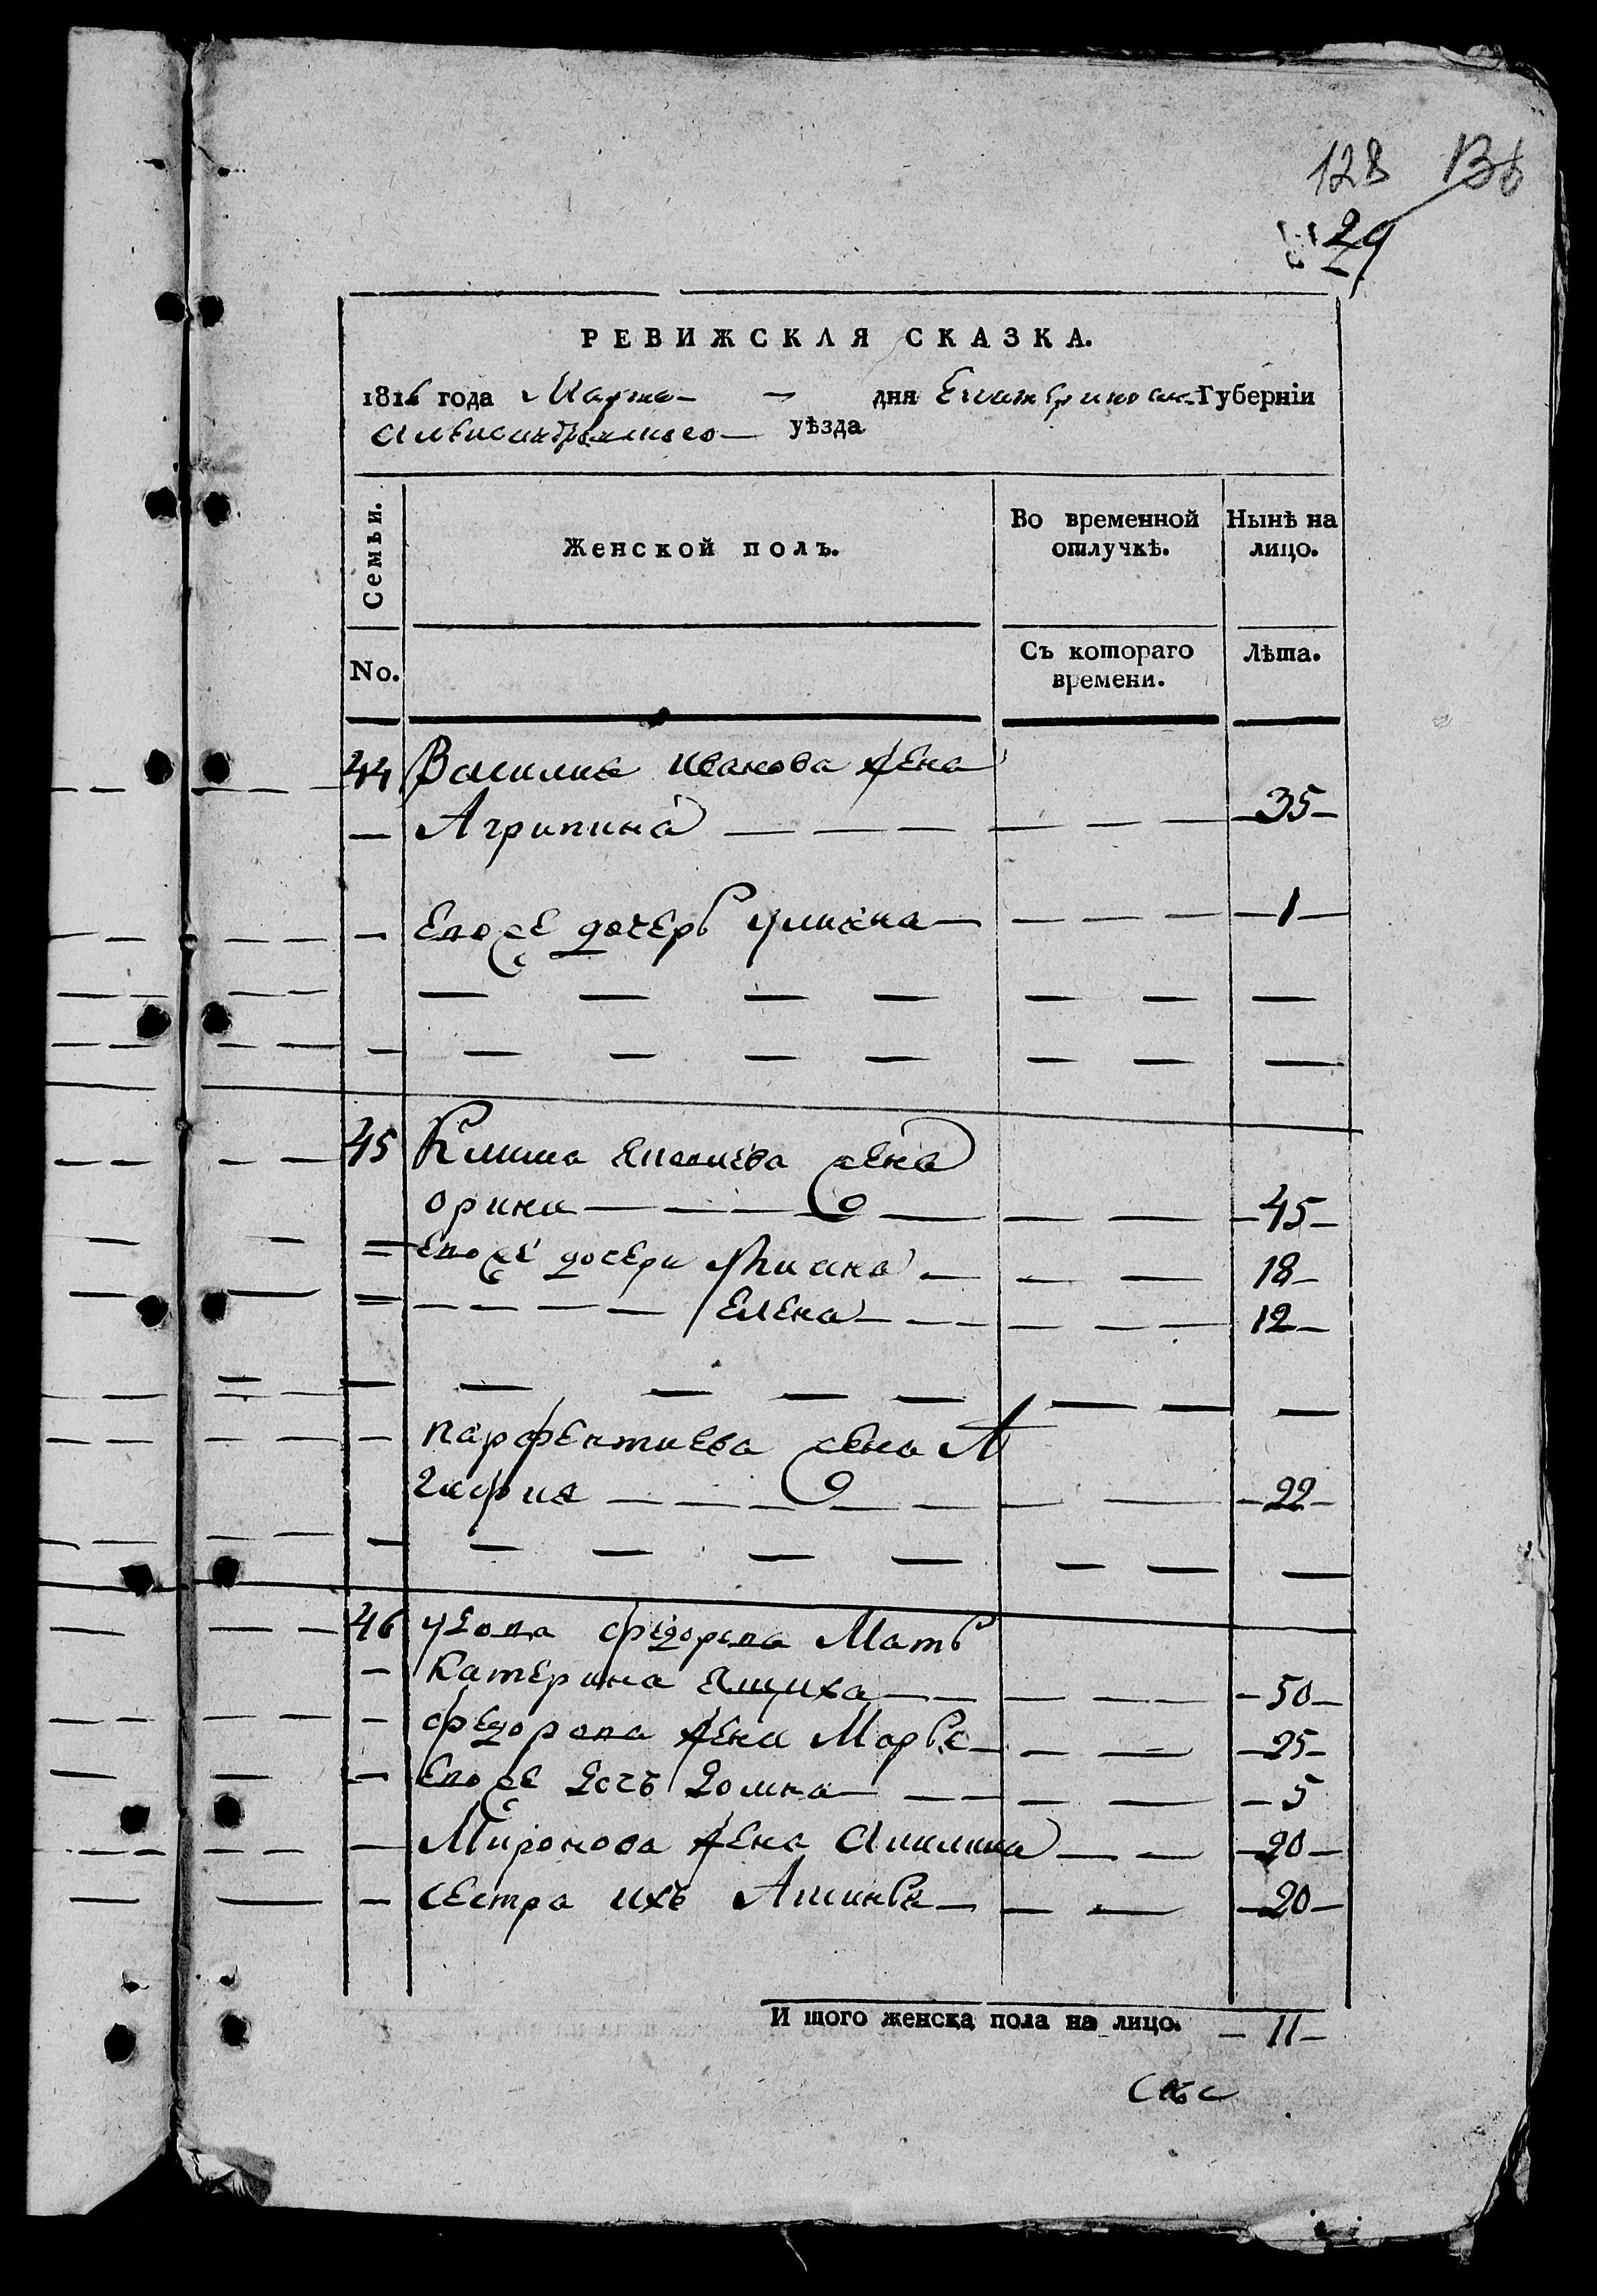 128 136
29
РЕВИЖСКАЯ СКАЗКА.
1816 года Марта — дня Екатеринослав. Губерніи
Александрійского — уѣзда
Семьи.
Женской полъ.
Во временной
отлучкѣ.
Нынѣ на
лицо.
No.
Съ котораго
времени.
Лѣта.
44 Василия иванова жена
— Агрипина — — — — — — 35 —
— Евоже дочерь улиана — — — — — 1 —
45 Клима жена
орина — — — — — — 45 —
= Евоже дочери — — — 18 —
= — — — — Елена — — — — — — 12 —
— парфентиева жена А
гафия — — — — — — — 22 —
46 федорова Мать
— Катерина — — — — — 50 —
— федорова жена Марья — — — 25 —
— Евоже дочъ домна — — — — — 5
— Миронова жена Акилина — — 20 —
— сестра ихъ — — — 20 —
И того женска пола на лицо. — 11 —